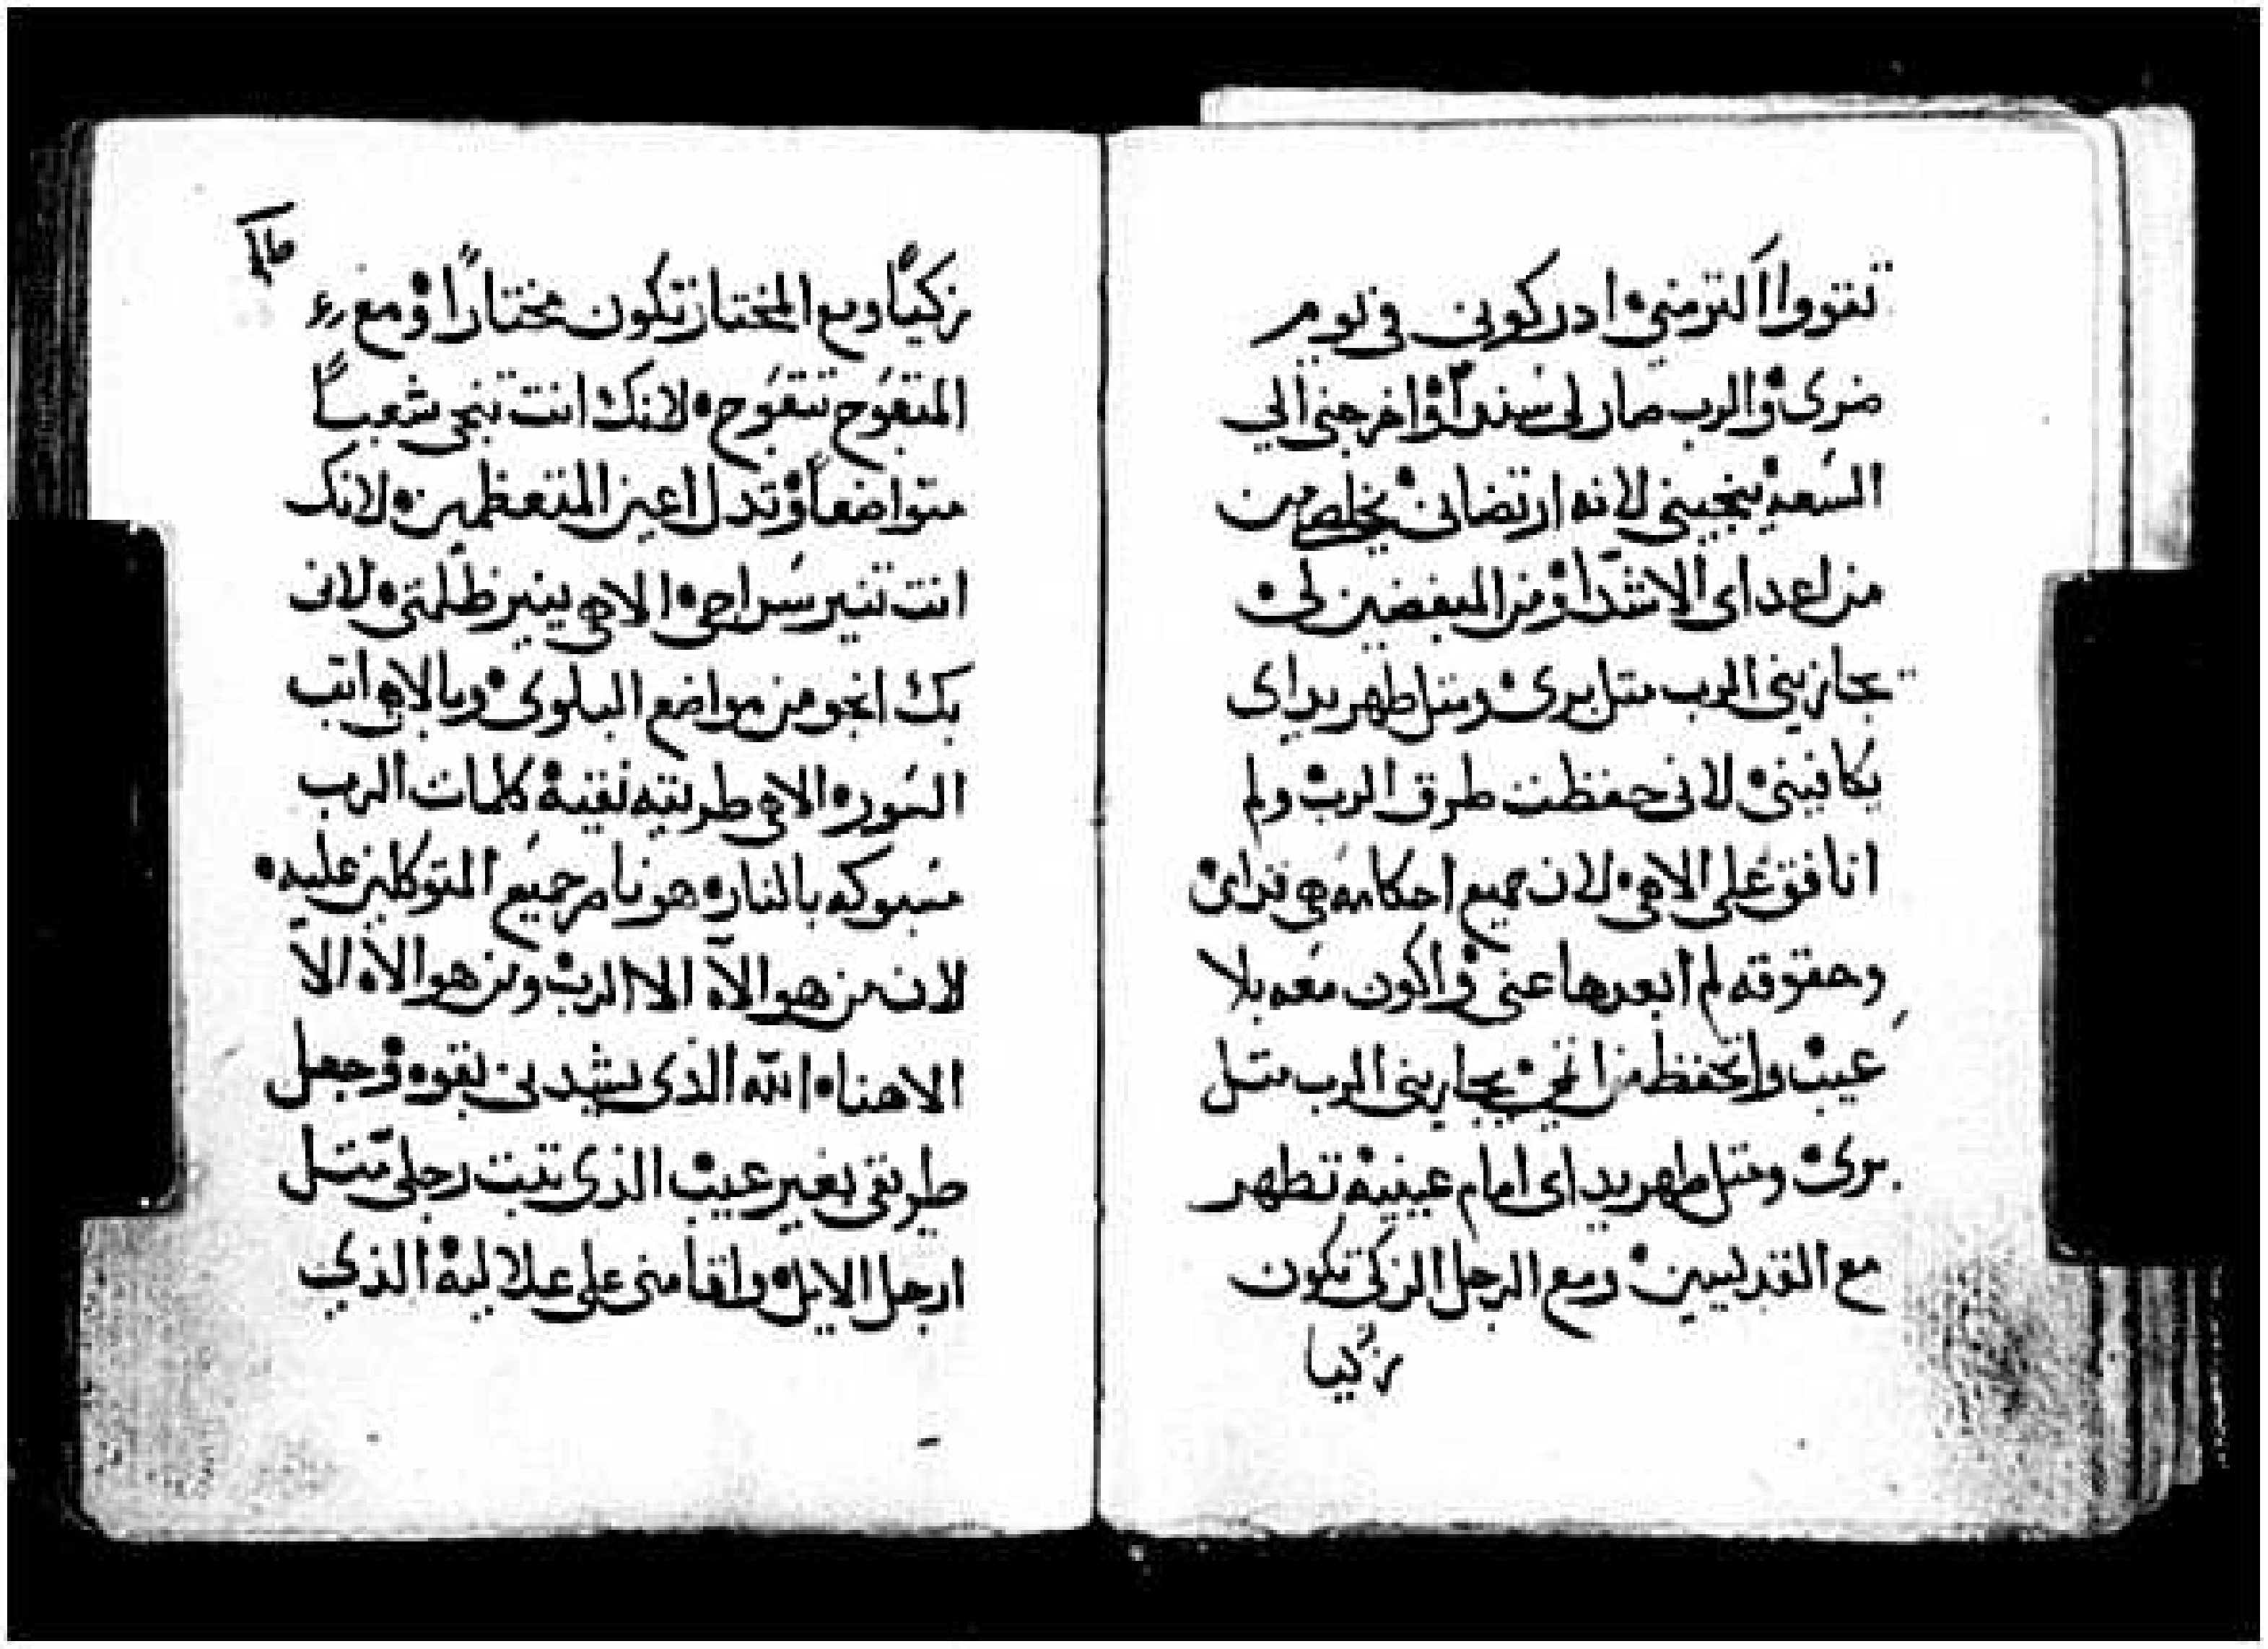 تقووا اكثر مني• ادركوني في يوم
ضري• والرب صار لي سنداً• واخرجني الي
السعه• ينجيني لانه ارتضاني• يخلصني من
من اعداي الاشدا• ومن المبغضين لي•
يجازيني الرب متل بري• ومتل طهر يداي
يكافيني• لاني حفظت طرق الرب• ولم
انافق علي الاهي• لان جميع احكامه هي قدامي•
وحقوقه لم ابعدها عني• واكون معه بلا
عيب• واتحفظ من اثمي• يجازيني الرب متل
بري• ومتل طهر يداي امام عينيه• تطهر
مع القديسين• ومع الرجل الزكي تكون
زكيا
زكياً• ومع المختار تكون مختاراً• ومع
المتعوج تتعوج• لانك انت تنجي شعباً
متواضعاً• وتدل اعين المتعظمين• لانك
انت تنير سراجي• الاهي ينير ظلمتي• لاني
بك انجو من مواضع البلوي• وبالاهي اتب
السور• الاهي طريقه نقيه• كلمات الرب
مسبوكه بالنار• هو ناصر جميع المتوكلين عليه•
لان من هو الاه الا الرب• ومن هو الاه الا
الاهنا• الله الذي يشدني بقوه• وجعل
طريقي بغير عيب• الذي تبت رجلي متل
ارجل الايل• واقامني علي علاليه• الذي